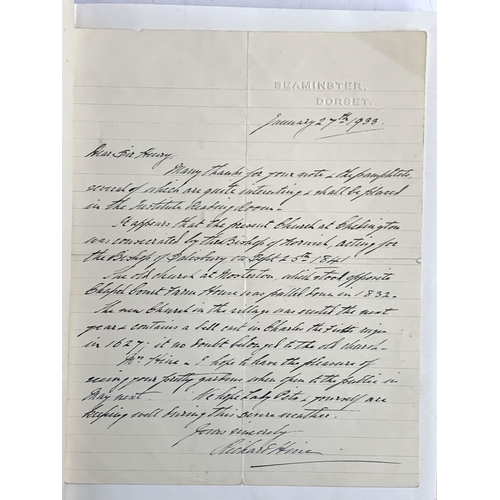 BEAMINSTER,
DORSET.
January 27th 1933.
Dear Sir Henry,
Many thanks for your note & the pamphlets,
several of which are quite interesting & shall be placed
in the Institute Reading Room.
It appears that the present Church at Chedington
was consecrated by the Bishop of Norwich, acting for
the Bishop of Salisbury on Sept 25th 1841
The old church at Mosterton, which stood opposite
Chapel Court Farm House was pulled down in 1832.
The new Church in the village was erected the next
year & contains a bell cast in Charles the First's reign
in 1627; it no doubt belonged to the old church.
Mrs Hine & I hope to have the pleasure of
seeing your pretty gardens when open to the public in
May next. We hope Lady Peto & yourself are
keeping well during this severe weather.
Yours sincerely
Richard Hine